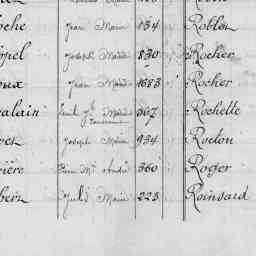 oche Jean Marie 834 Roblen
opel Joseph Marie 830 Rocher
oux Jean Marie 1683 Rocher
alain Emile Marie 367 Rochette
Joseph Marie 934 Rocton
ière Pierre Mie André 360 Roger
bern Jules Marie 223 Roinsard